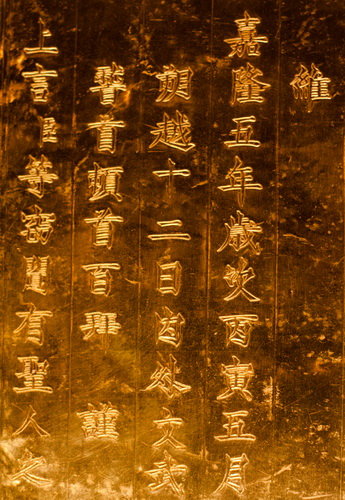 維
嘉隆五年歲次丙寅五月
朔越十二日文武
稽首頓首百拜謹
上言臣等竊聞有聖人之